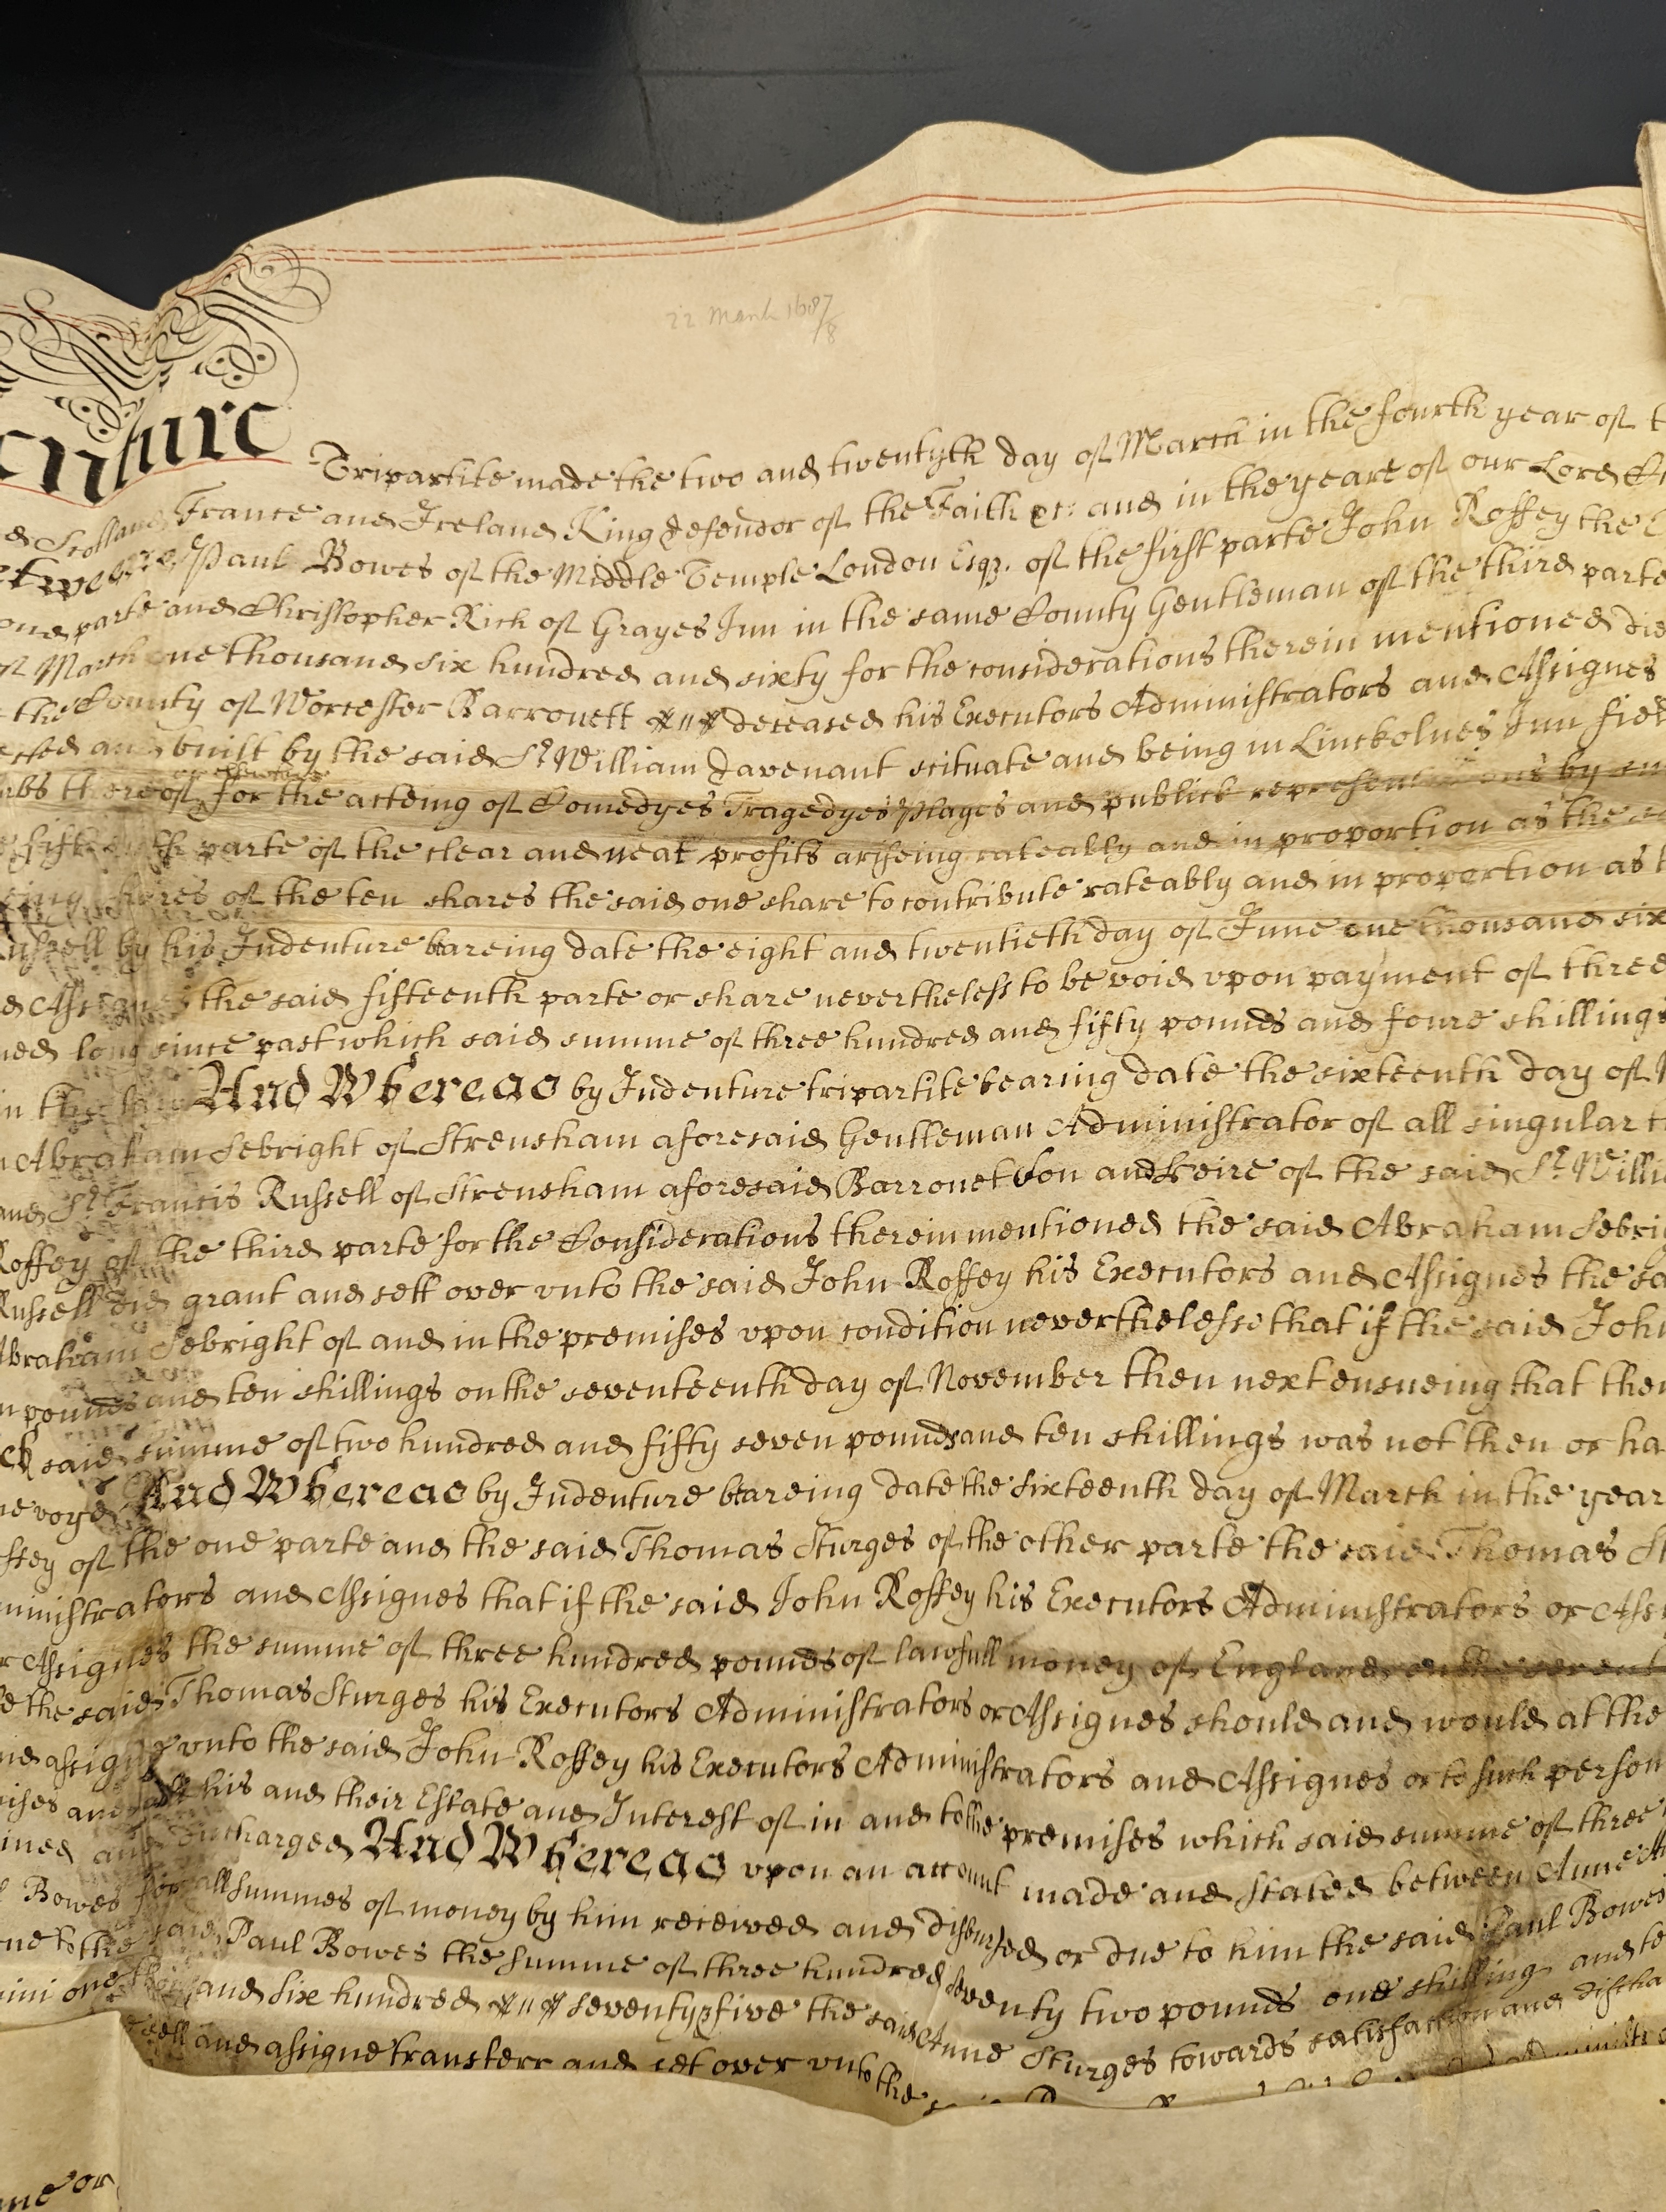 22 March 1687/8
enture Tripartite made the two and twentyth day of March in the fourth year of
Scotland France and Ireland King Defendor of the Faith &c: and in the yeare of our Lord
Paul Bowes of the Middle Temple London Esqr. of the first parte John Roffey the
parte and Christopher Rich of Grayes Inn in the same County Gentleman of the third parte
March one thousand six hundred and sixty for the considerations therein mentioned did
the County of Worcester Barronett deceased his Executors Administrators and Assignes
and built by the said Sr. William Davenant scituate and being in Linckolnes Inn field
thereof for the acteing of Comedyes Tragedyes Playes and publick by
parte of the clear and neat profitts ariseing rateably and in proportion as the
of the ten shares the said one share to contribute rateably and in proportion as
by his Indenture beareing date the eight and twentieth day of June one thousand six
the said fifteenth parte or share neverthelesse to be void vpon payment of three
long since past which said summe of three hundred and fifty pounds and foure shillings
in the And Whereas by Indenture tripartite bearing date the sixteenth day of
Abraham Sebright of Strensham aforesaid Gentleman Administrator of all singular
and Sr. Francis Russell of Strensham aforesaid Barronet Son and heire of the said Sr. Willi
Roffey of the third parte for the Considerations therein mentioned the said Abraham Sebri
Russell did grant and sett over vnto the said John Roffey his Executors and Assignes the
Abraham Sebright of and in the premises vpon condition neverthelesse that if the said John
pounds and ten shillings on the seventeenth day of November then next ensueing that then
said summe of two hundred and fifty seven pounds and ten shillings was not then or
And Whereas by Indenture beareing date the sixteenth day of March in the year
of the one parte and the said Thomas Sturges of the other parte the said Thomas St
ministrators and Assignes that if the said John Roffey his Executors Administrators or
Assignes the summe of three hundred pounds of lawfull money of England on the
the said Thomas Sturges his Executors Administrators or Assignes should and would at the
vnto the said John Roffey his Executors Administrators and Assignes or to such person
and all his and their Estate and Interest of in and to the premises which said summe of three
And Whereas vpon an account made and stated between Anne
Bowes for all summes of money by him received and disbursed or due to him the said Paul Bowes
to the said Paul Bowes the summe of three hundred seventy two pounds one shilling and
one thousand six hundred seventy five the said Anne Sturges towards satisfaction and
sell and assigne transferr and set over vnto the
or